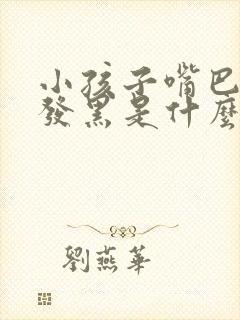 小孩子嘴巴
發黑是什麼
劉燕華